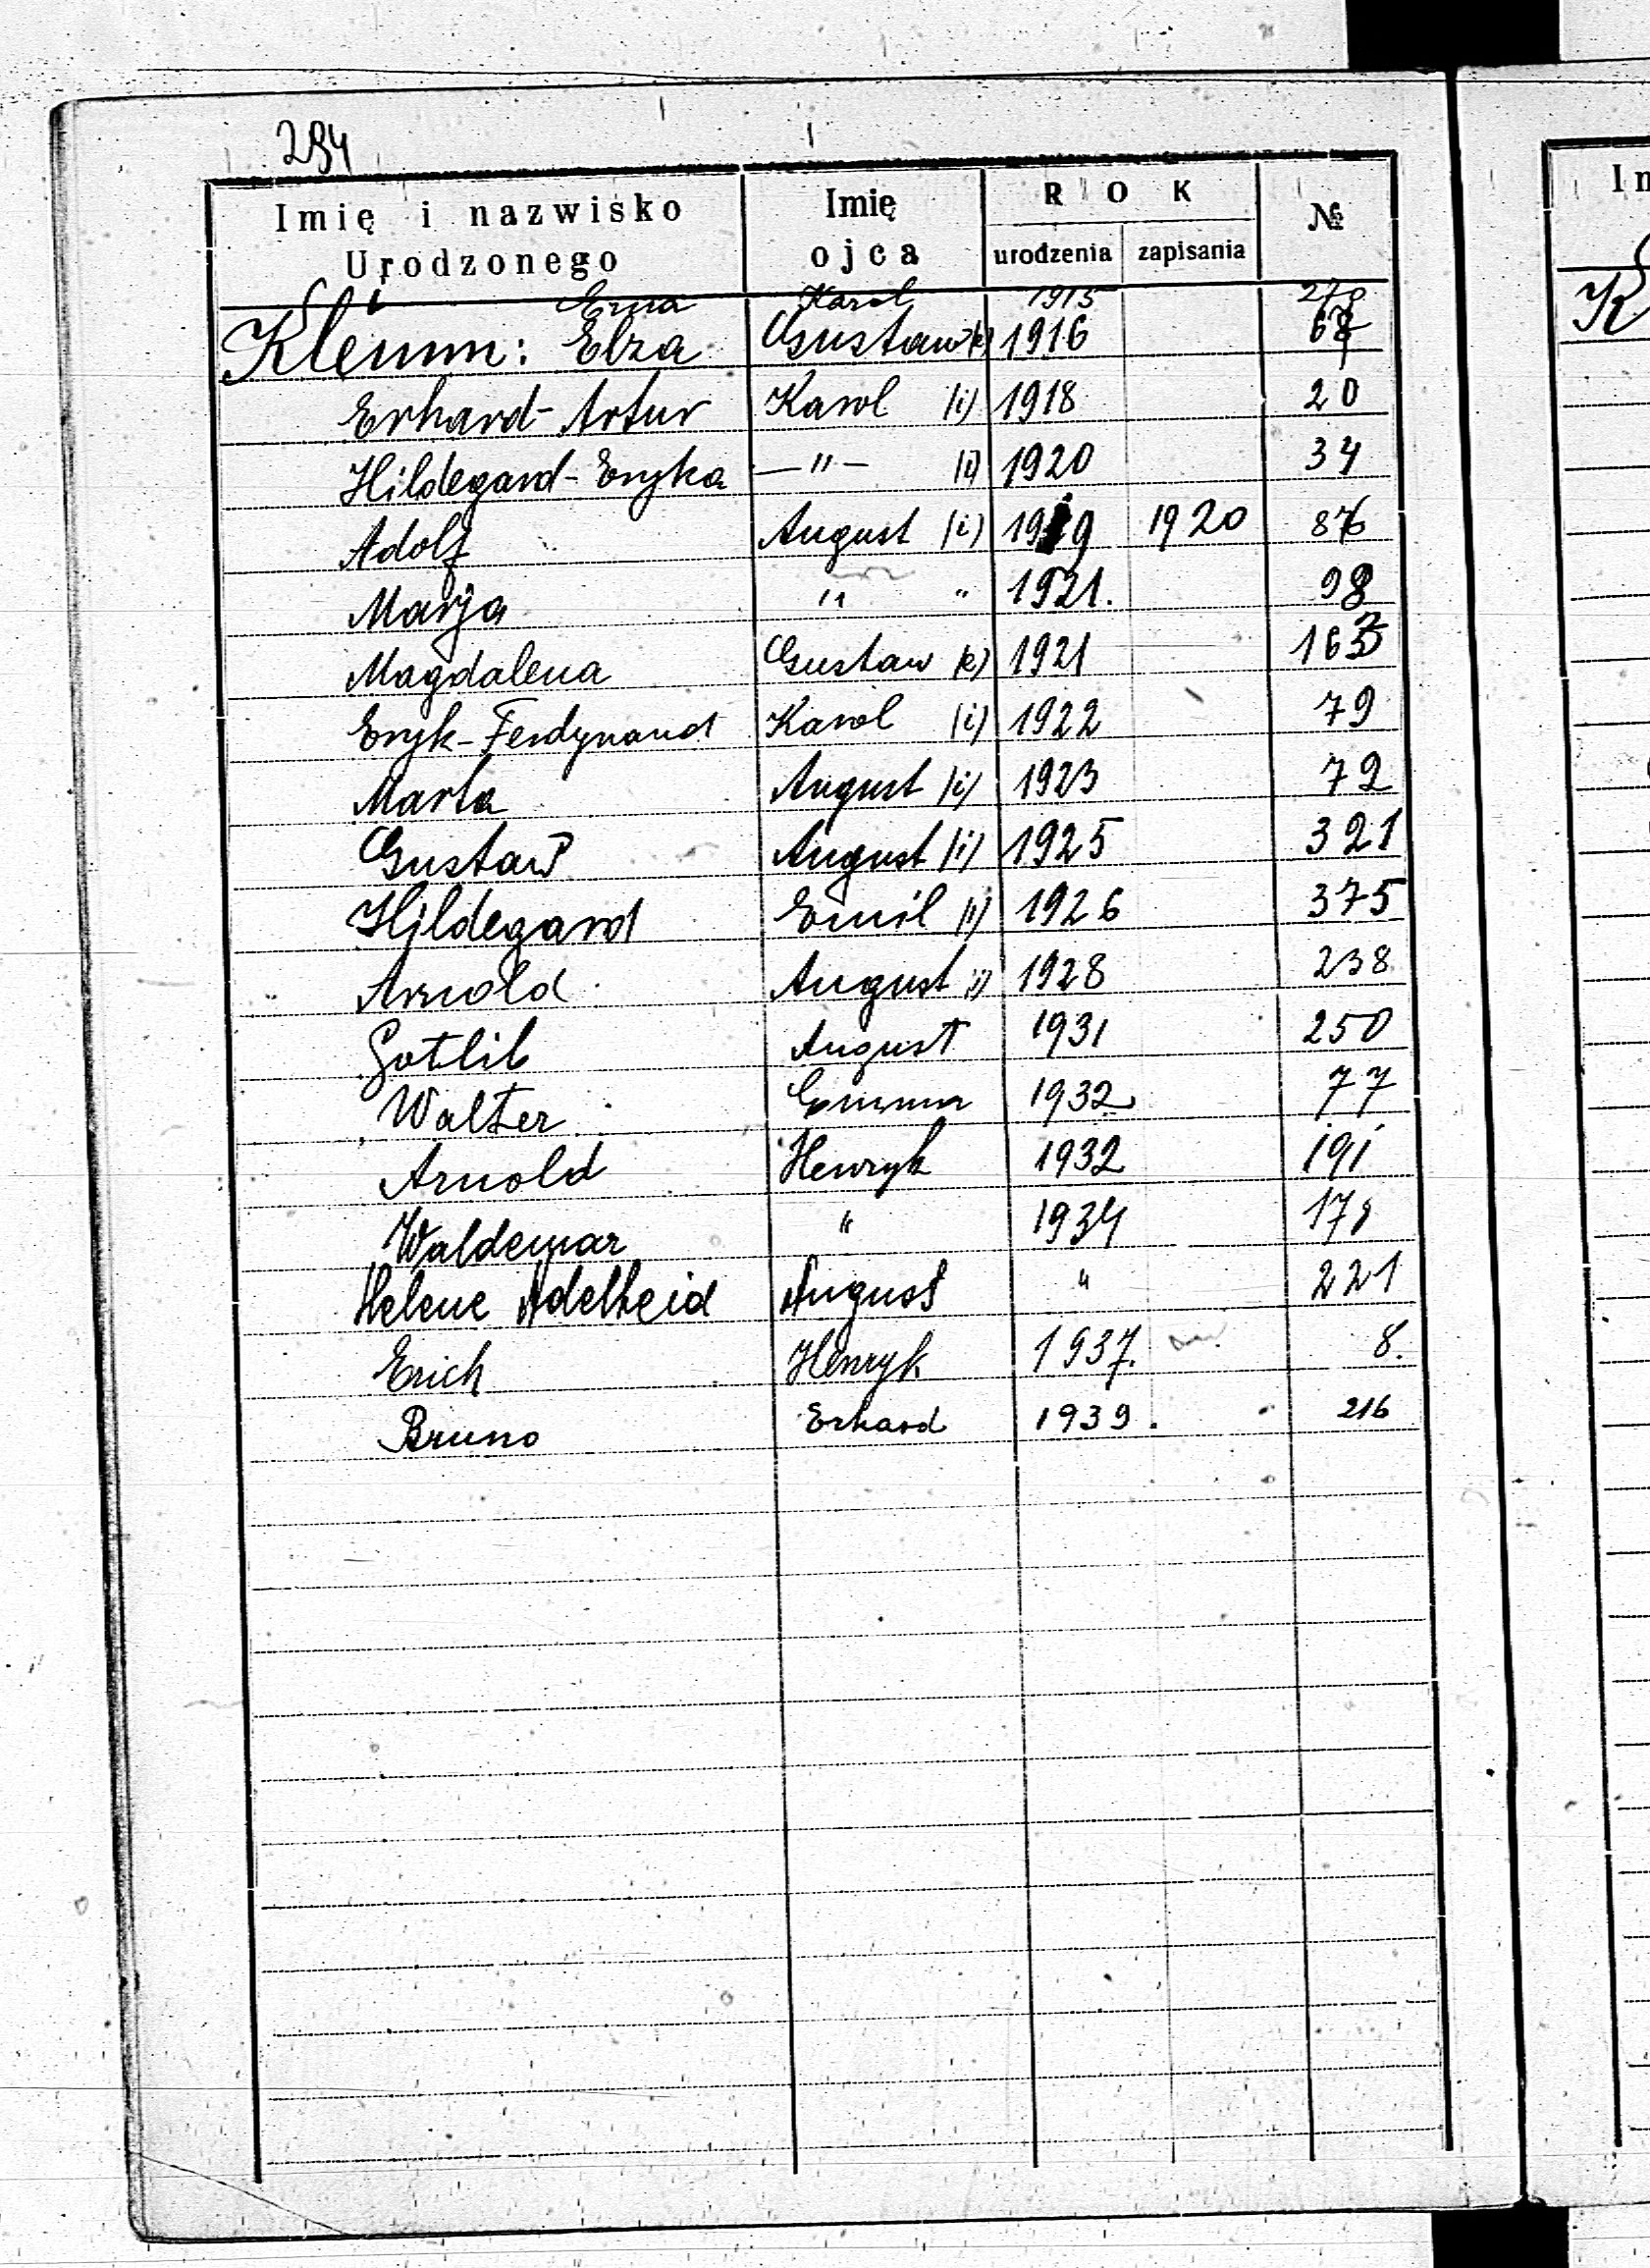 294
Imię i nazwisko Urodzonego Imię ojca ROK urodzenia zapisania №
Erna Karol 1915 278
Klemm: Elza Gustaw (e) 1916 68
Erhard-Artur Karol (i) 1918 20
Hildegard-Eryka —"— (i) 1920 34
Adolf August (i) 1919 1920 86
Marja " " 1921. 98
Magdalena Gustaw (e) 1921
Eryk-Ferdynand Karol (i) 1922 79
Marta August (i) 1923 72
Gustaw August (i) 1925 321
Hildegard Emil (i) 1926 375
Arnold August (i) 1928 238
Gotlib August 1931 250
Walter 1932 77
Arnold Henryk 1932 191
Waldemar " 1934 178
Helene Adelheid August " 221
Erich Henryk 1937. 8.
Bruno Erhard 1939. 216
K